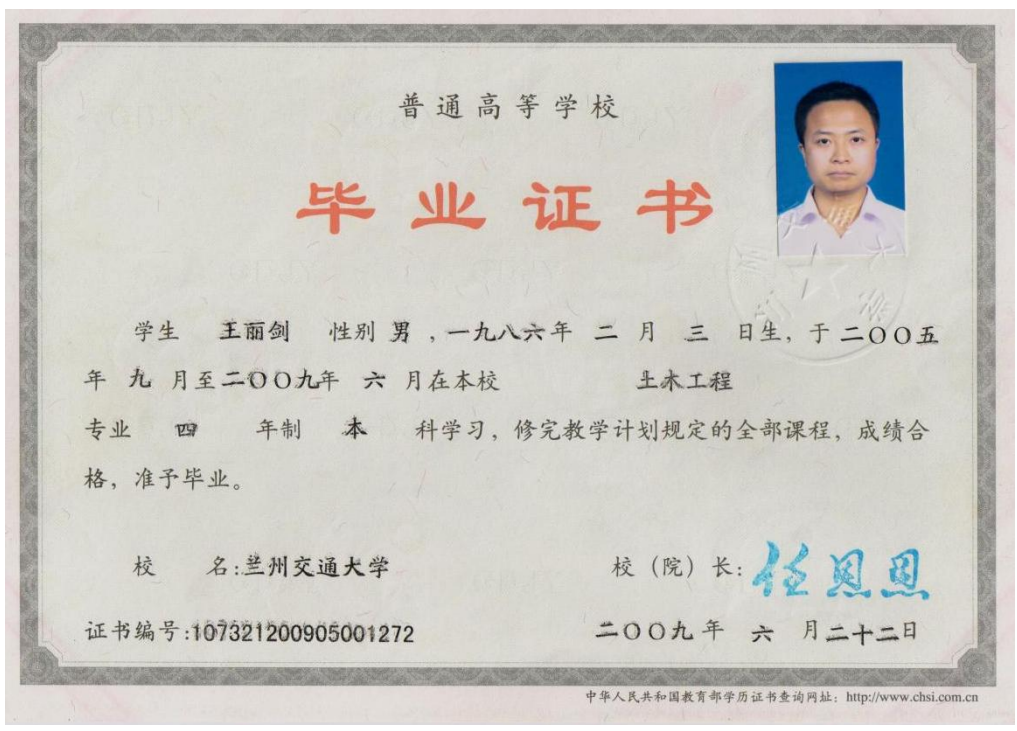 普通高等学校
毕业证书
学生 王丽剑 性别 男 ,一九八六年 二 月 三 日生, 于 二〇〇五
年 九 月至二〇〇九年 六 月在本校 土木工程
专业 四 年制 本 科学习, 修完教学计划规定的全部课程, 成绩合
格, 准予毕业。
校 名:兰州交通大学 校（院）长: 任恩恩
证书编号:107321200905001272 二〇〇九年 六 月二十二日
中华人民共和国教育部学历证书查询网址: http://www.chsi.com.cn